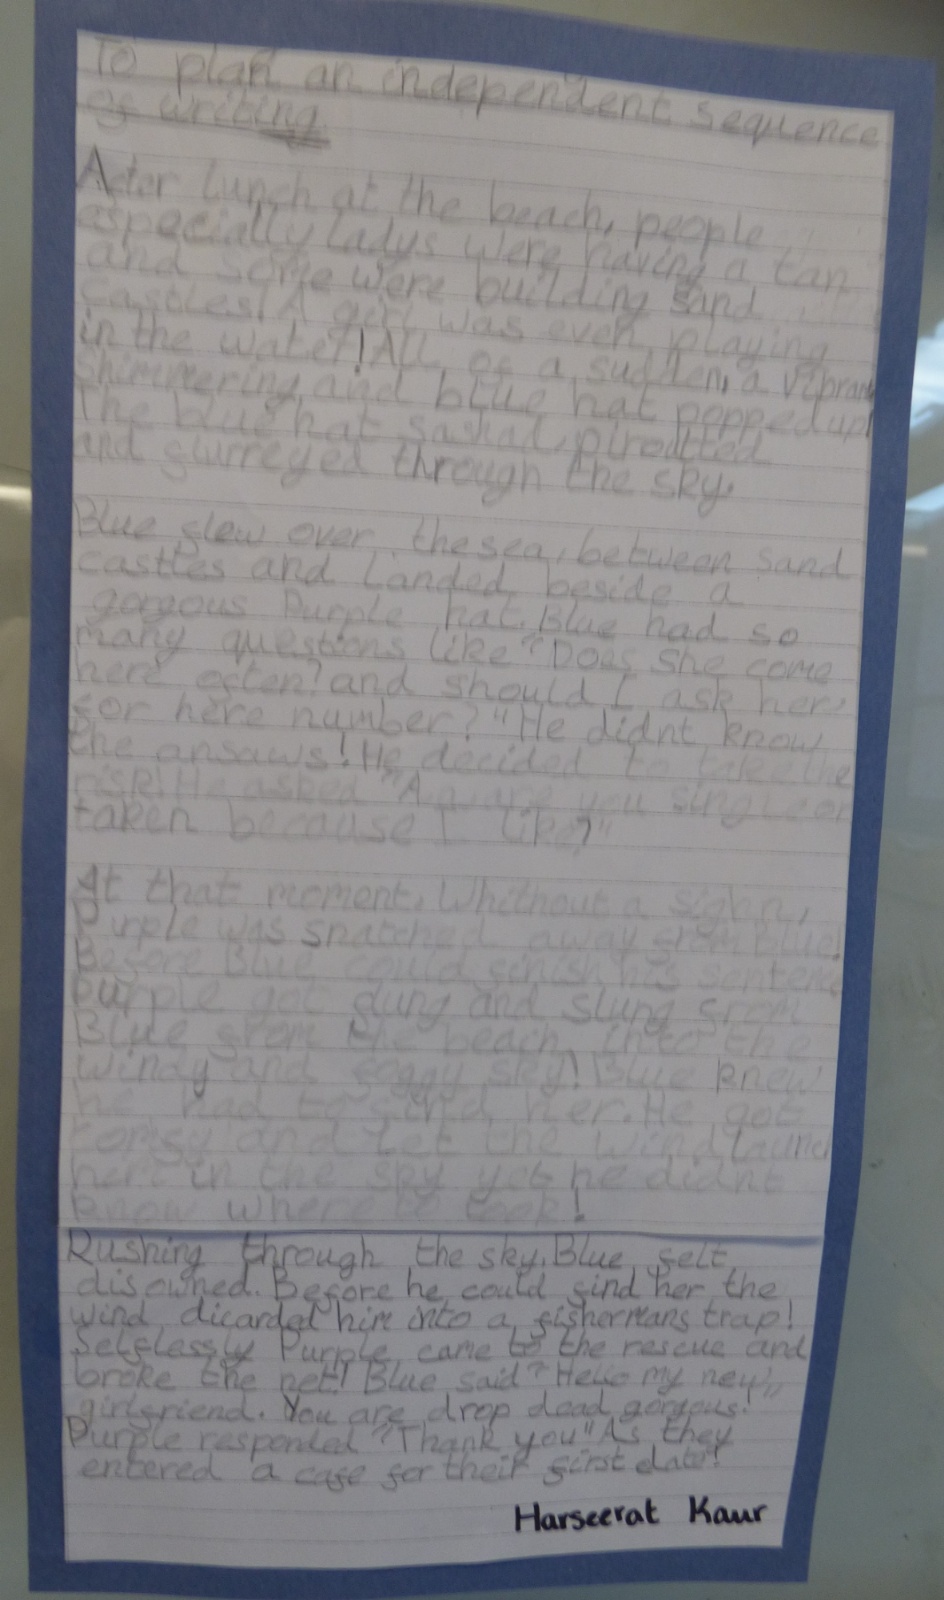 To plan an independent sequence
of writing
After lunch at the beach, people
especially ladys were having a tan
and some were building sand
castles! A girl was even playing
in the water! All of a sudden, a vibrant
shimmering and blue hat popped up!
The blue hat sashal, piroetted
and flurreyed through the sky.
Blue flew over the sea, between sand
castles and landed beside a
gorgous Purple hat. Blue had so
many questions like "Does she come
here often? and should I ask her
for here number?" He didnt know
the ansaws! He decided to take the
risk! He asked "A are you single or
taken because I like?"
At that moment, Whithout a sighn,
Purple was snatched away from Blue!
Before Blue could finish his sentence
purple got flung and slung from
Blue from the beach into the
windy and foggy sky! Blue knew
he had to find her. He got
and let the wind launch
in the sky yet he didnt
know where to look!
Rushing through the sky, Blue felt
disowned. Before he could find her the
wind dicarded him into a fishermans trap!
Selflessly Purple came to the rescue and
broke the net! Blue said "Hello my new
girlfriend. You are drop dead gorgous!"
Purple responded "Thank you" As they
entered a cafe for their first date!
Harseerat Kaur